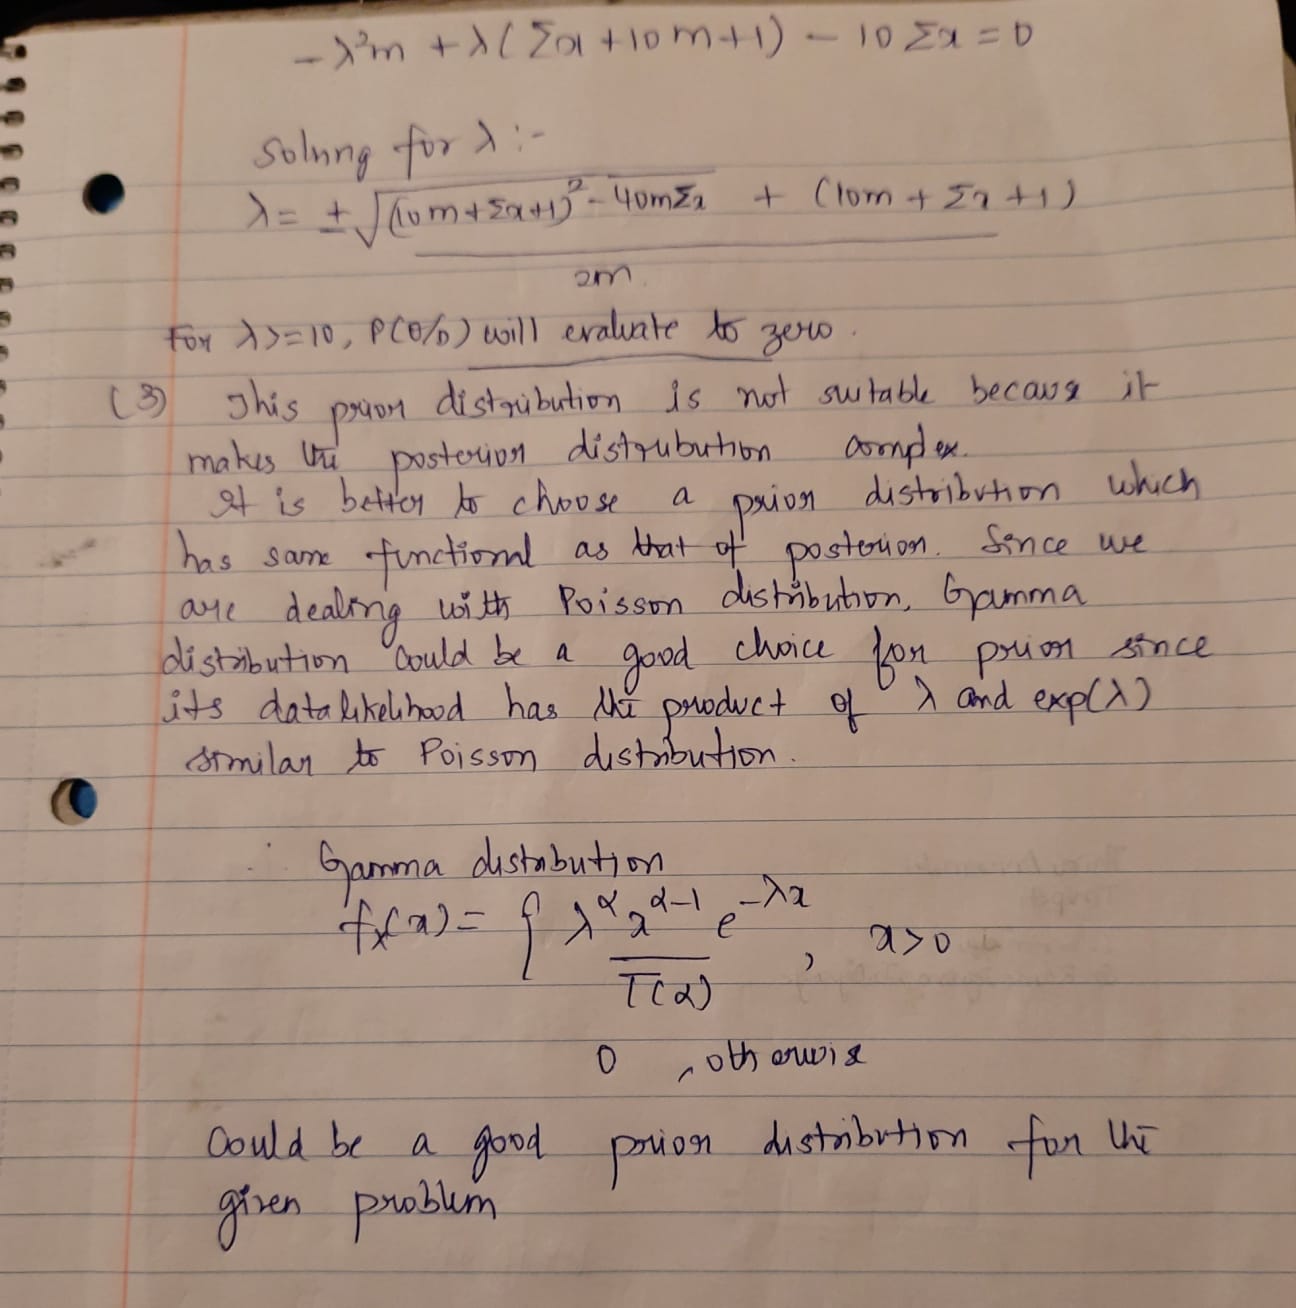 -λ²m + λ(Σx + 10m + 1) - 10Σx = 0
Solving for λ :-
λ = ± √(10m + Σx + 1)² - 40mΣx + (10m + Σx + 1)
2m
For λ >= 10, P(θ/D) will evaluate to zero.
(3) This prior distribution is not suitable because it
makes the posterior distribution complex.
It is better to choose a prior distribution which
has same functional as that of posterior. Since we
are dealing with Poisson distribution, Gamma
distribution could be a good choice for prior since
its data likelihood has the product of λ and exp(λ)
similar to Poisson distribution.
∴ Gamma distribution
fₓ(x) = { λ^α x^(α-1) e^(-λx) , x > 0
Γ(α)
0 , otherwise
Could be a good prior distribution for the
given problem